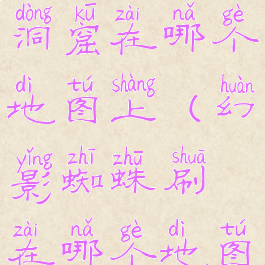 dòng kū zài nǎ gè
洞窟在哪个
dì tú shàng huàn
地图上(幻
yǐng zhī zhū shuā
影蜘蛛刷
zài nǎ gè dì tú
在哪个地图